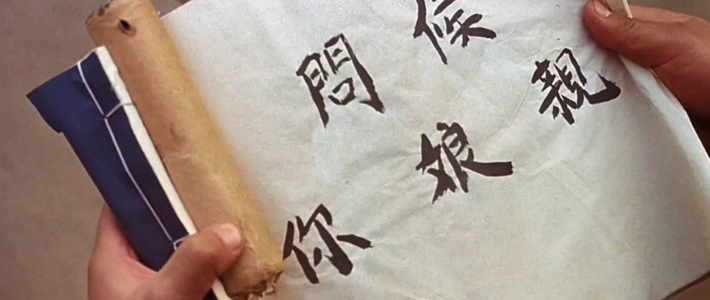 問候
你娘親